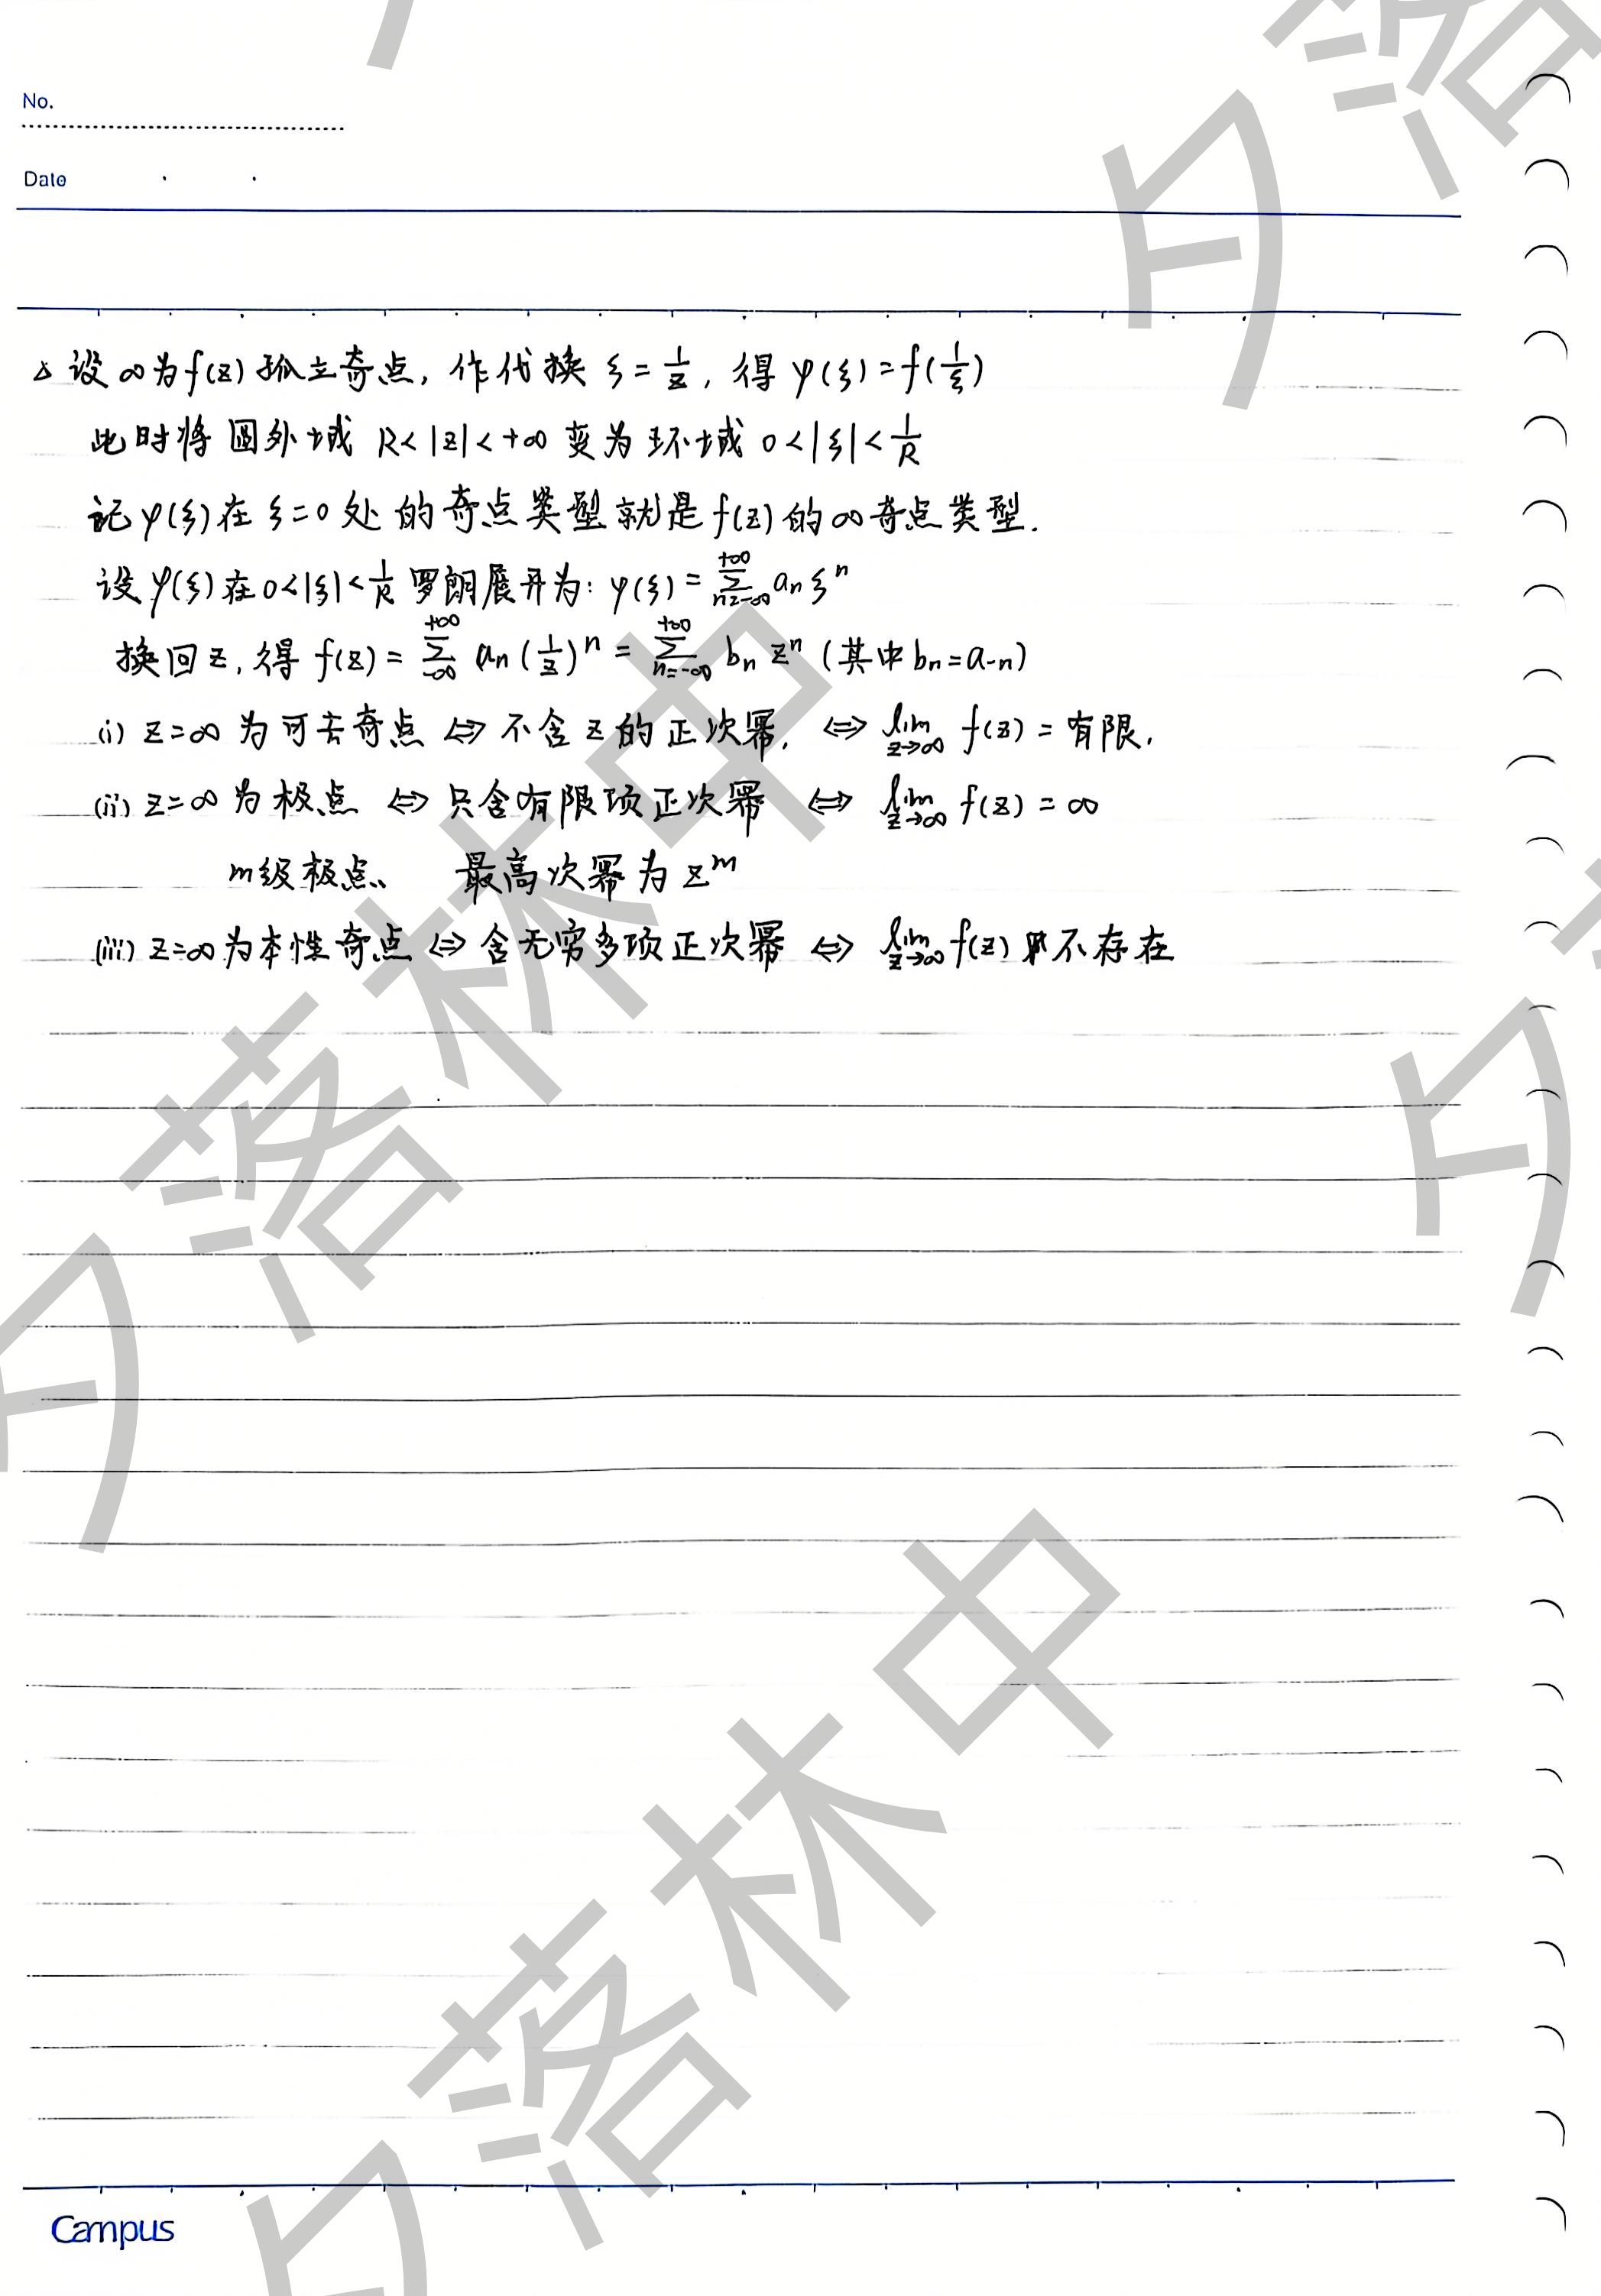 No.
Date
△ 设 ∞ 为 f(z) 孤立奇点, 作代换 ξ = 1/z, 得 φ(ξ) = f(1/ξ)
此时将圆外域 R < |z| < +∞ 变为环域 0 < |ξ| < 1/R
记 φ(ξ) 在 ξ = 0 处的奇点类型就是 f(z) 的 ∞ 奇点类型.
设 φ(ξ) 在 0 < |ξ| < 1/R 罗朗展开为: φ(ξ) = ∑_{n=-∞}^{+∞} aₙ ξⁿ
换回 z, 得 f(z) = ∑_{-∞}^{+∞} aₙ (1/z)ⁿ = ∑_{n=-∞}^{+∞} bₙ zⁿ (其中 bₙ = a₋ₙ)
(i) z = ∞ 为可去奇点 ⇔ 不含 z 的正次幂, ⇔ lim_{z→∞} f(z) = 有限.
(ii) z = ∞ 为极点 ⇔ 只含有限项正次幂 ⇔ lim_{z→∞} f(z) = ∞
m级极点、 最高次幂为 zᵐ
(iii) z = ∞ 为本性奇点 ⇔ 含无穷多项正次幂 ⇔ lim_{z→∞} f(z) 不存在
Campus
夕落林中
夕落林中
夕落
夕